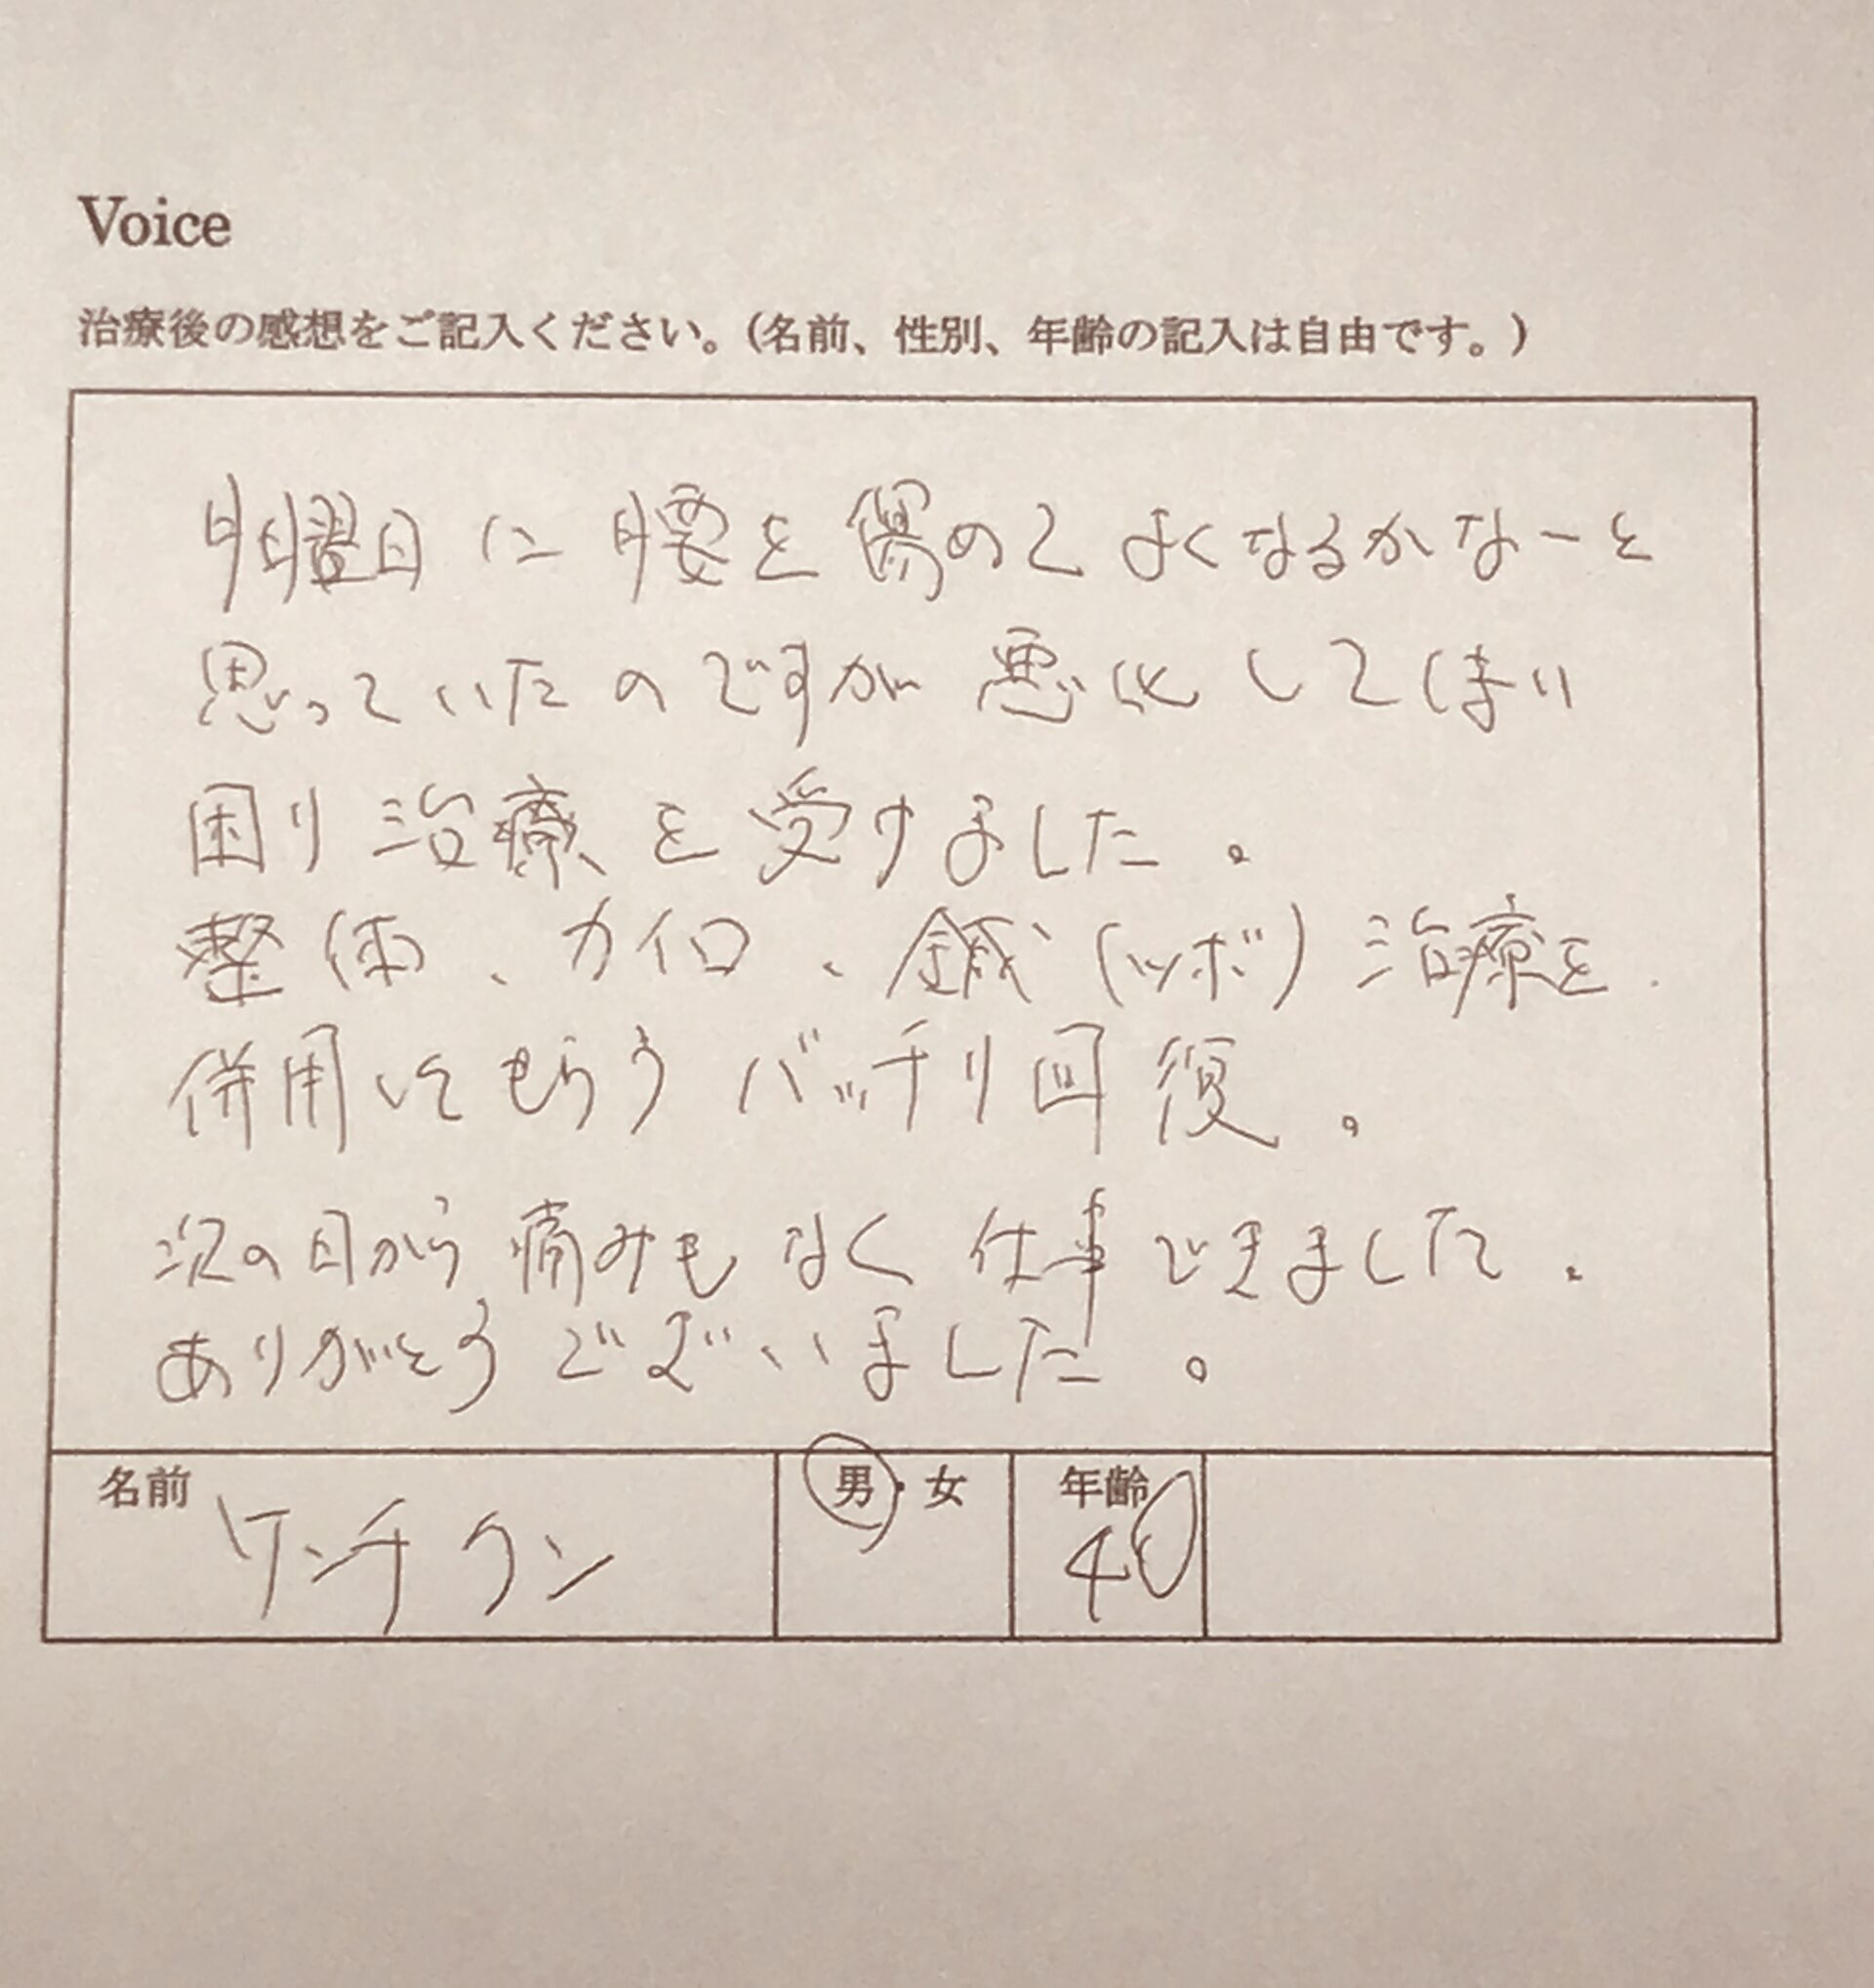 Voice
治療後の感想をご記入ください。(名前、性別、年齢の記入は自由です。)
月曜日に腰を傷めてよくなるかなーと
思っていたのですが悪化してしまい
困り治療を受けました。
整体、カイロ、鍼(ツボ)治療を
併用してもらうバッチリ回復。
次の日から痛みもなく仕事できました。
ありがとうございました。
名前 ケンチクン 男・女 年齢 40